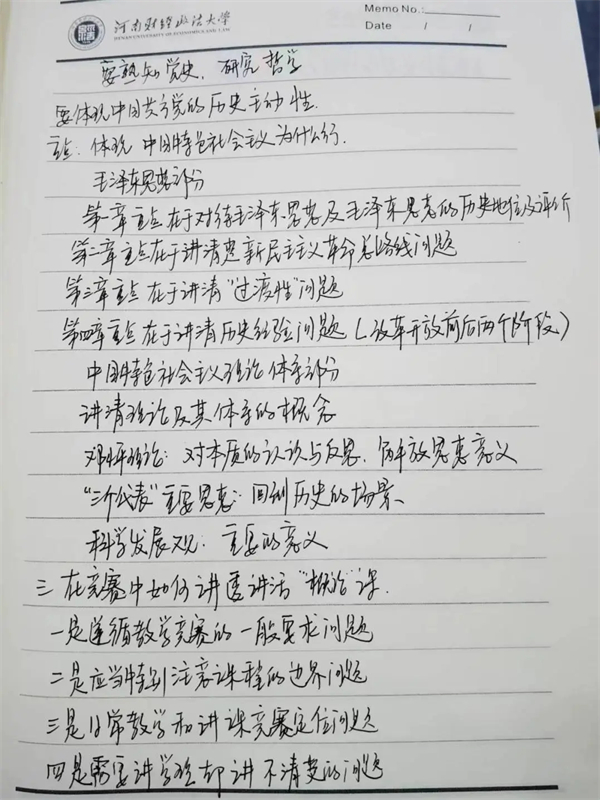 河南财经政法大学
HENAN UNIVERSITY OF ECONOMICS AND LAW
Memo No.:
Date / /
要熟知党史、研究哲学
要体现中国共产党的历史主动性.
重点: 体现 中国特色社会主义为什么行.
毛泽东思想部分
第一章重点在于对待毛泽东思想及毛泽东思想的历史地位及评价
第二章重点在于讲清楚新民主主义革命总路线问题
第三章重点在于讲清“过渡性”问题
第四章重点在于讲清历史经验问题(改革开放前后两个阶段)
中国特色社会主义理论体系部分
讲清理论及其体系的概念
邓小平理论: 对本质的认识与反思、解放思想意义
“三个代表”重要思想: 回到历史的场景、
科学发展观: 重要的意义
三 在竞赛中如何讲透讲活“概论”课.
一是遵循教学竞赛的一般要求问题
二是应当特别注意课程的边界问题
三是日常教学和讲课竞赛定位问题
四是需要讲学理却讲不清楚的问题